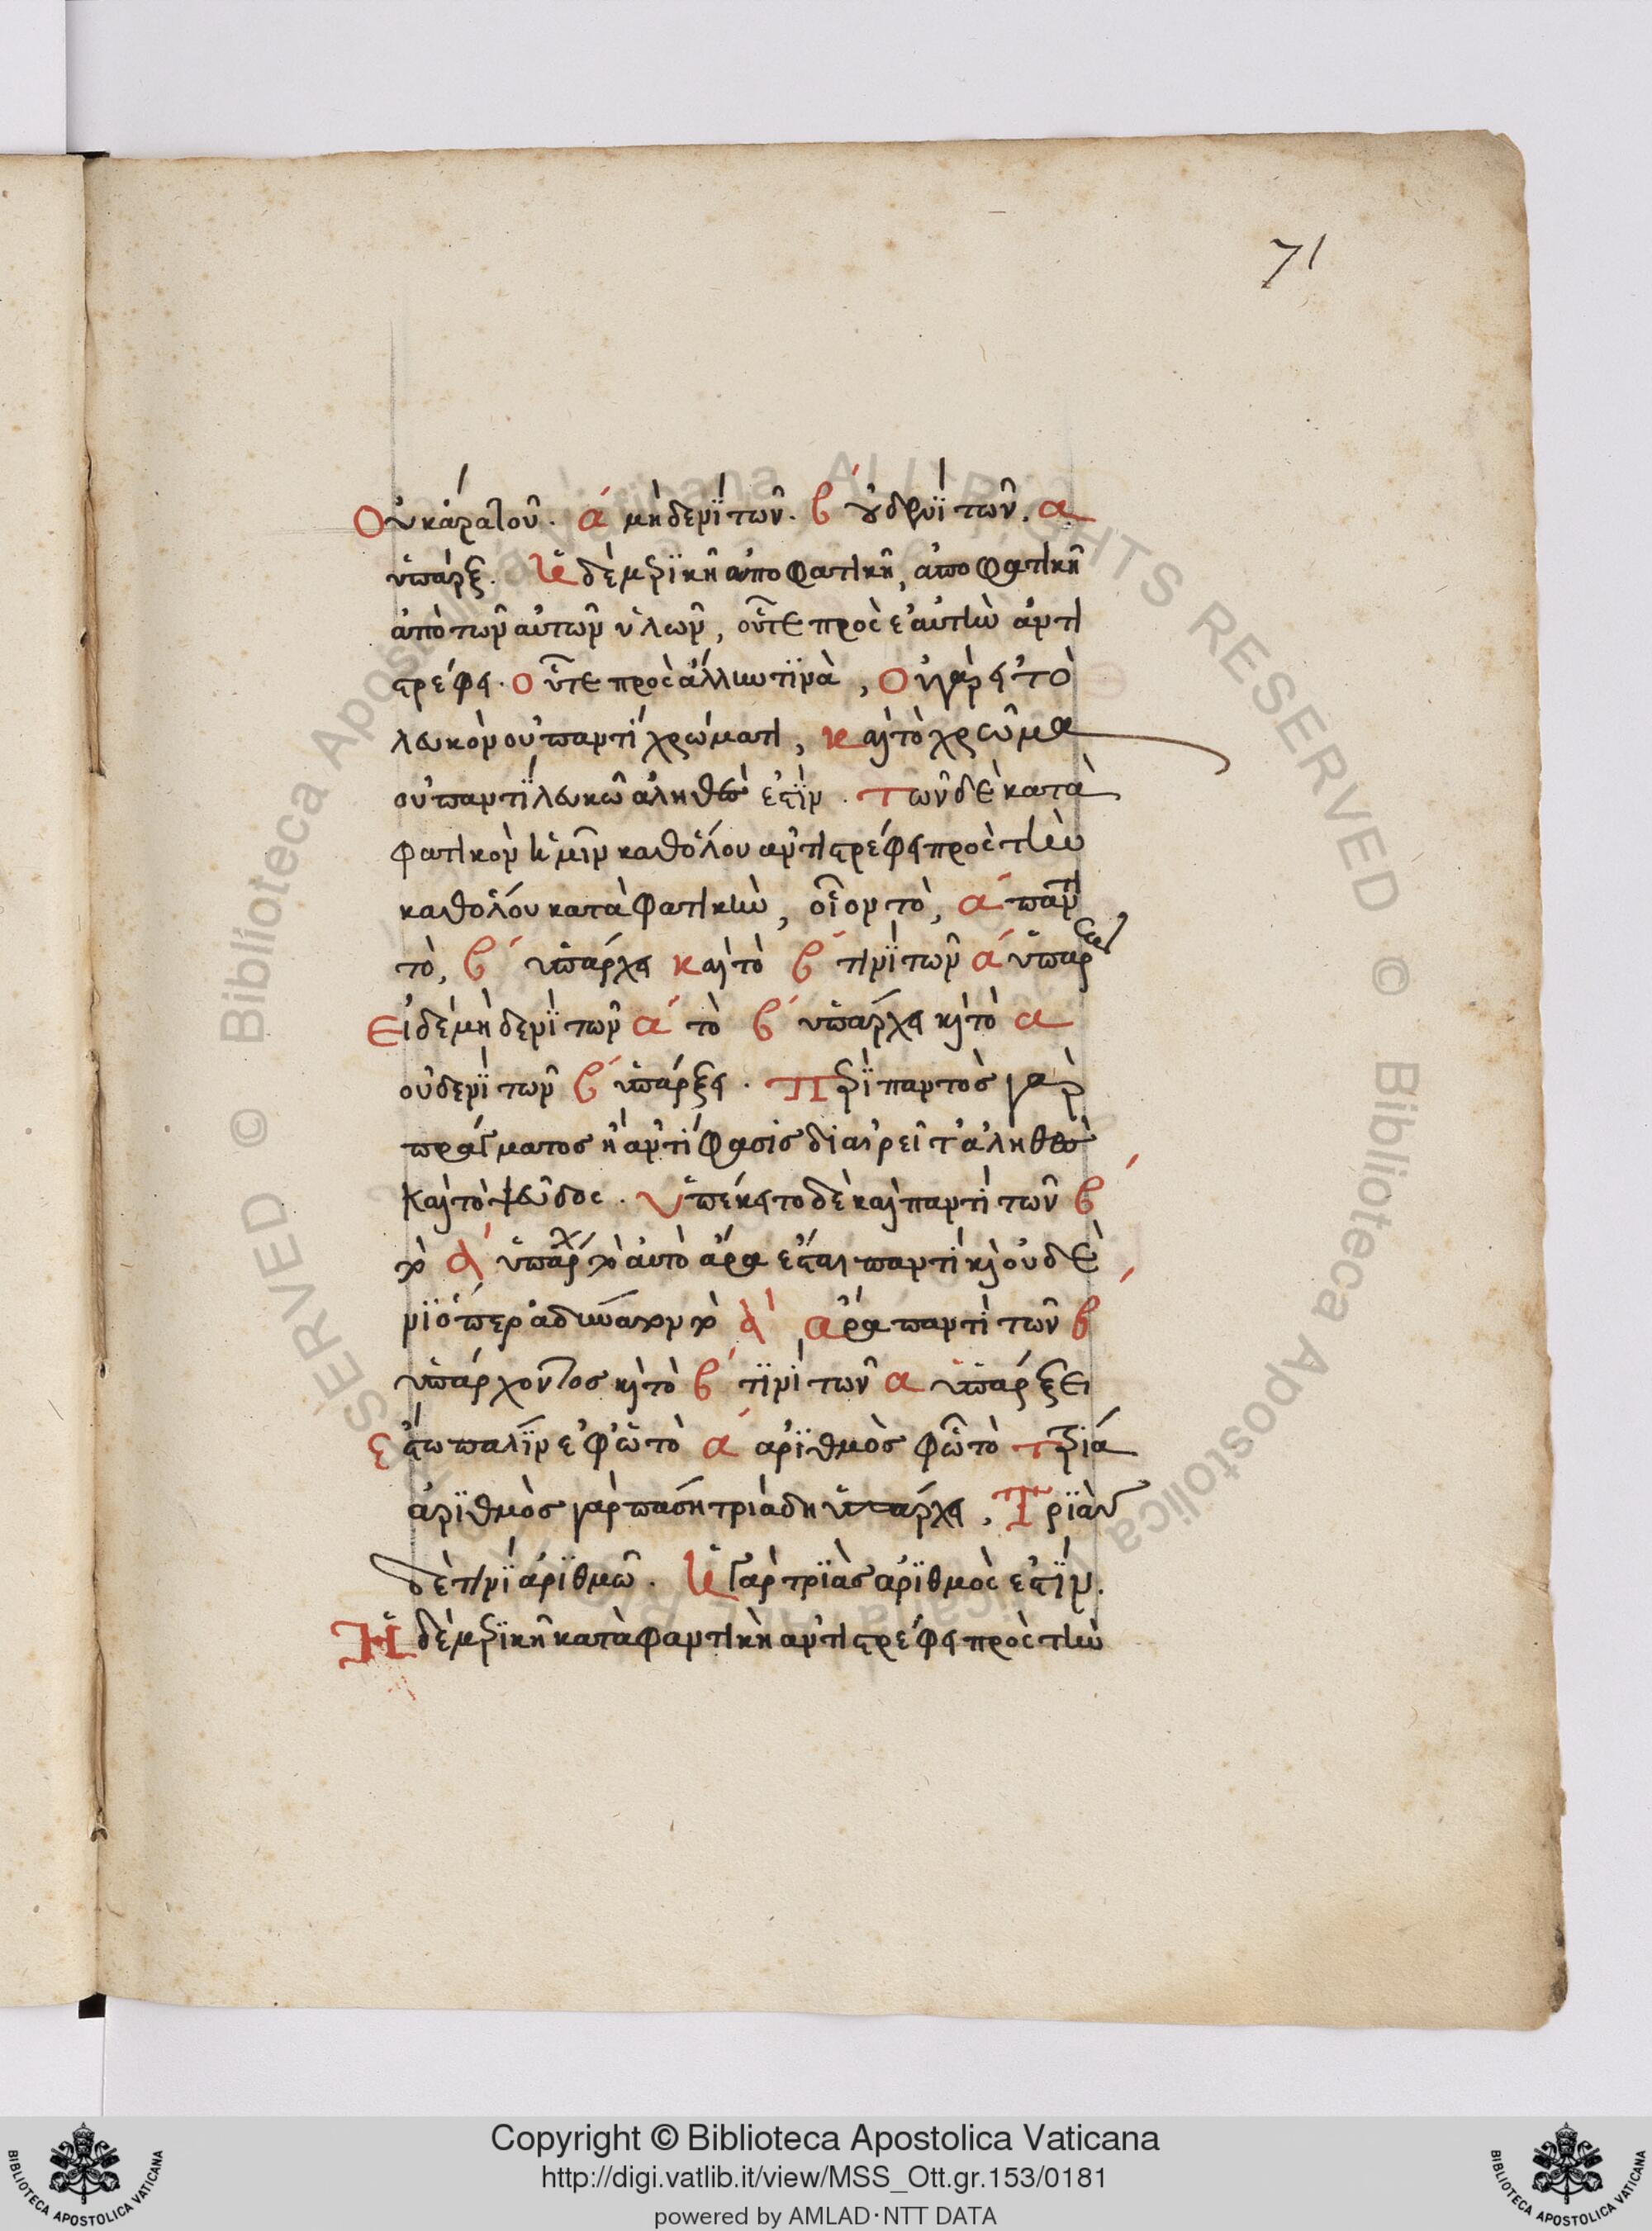 71
Οὐκ ἄρα τοῦ. ά μηδενὶ τῶν. β οὐδενὶ τῶν. α
ὑπάρξ. ἡ δὲ μερικὴ ἀποφατικὴ, ἀποφατικὴ
ἀπὸ τῶν αὐτῶν ὑλῶν, οὔτε πρὸς ἑαυτὴν ἀντι
στρέφει. οὔτε πρὸς ἄλλην τινὰ, Οὐ γὰρ εἰ τὸ
λευκὸν οὐ παντὶ χρώματι, καὶ τὸ χρῶμα
οὐ παντὶ λευκῶ ἀληθὲς ἐστὶν. Τῶν δὲ κατα
φατικῶν ἡ μὲν καθόλου ἀντιστρέφει πρὸς τὴν
καθόλου καταφατικὴν, οἷον τὸ, ά παντὶ
τὸ, β́ ὑπάρχει καὶ τὸ β́ τινὶ τῶν ά ὑπάρξει
Εἰ δὲ μηδενὶ τῶν ά τὸ β́ ὑπάρχει καὶ τὸ α
οὐδενὶ τῶν β́ ὑπάρξει. Περὶ παντὸς γὰρ
πράγματος ἡ ἀντίφασις διαιρεῖ τἀληθὲς
καὶ τὸ ψεῦδος. Ὑπέκειτο δὲ καὶ παντὶ τῶν β́
τὸ ά ὑπάρχ τὸ αὐτὸ ἄρα ἔσται παντὶ καὶ οὐδε
νὶ ὅπερ ἀδύνατον τὸ ά ἄρα παντὶ τῶν β́
ὑπάρχοντος καὶ τὸ β́ τινὶ τῶν α ὑπάρξει
ἔστω πάλιν ἐφ' ὧ τὸ ά ἀριθμὸς φῶ τὸ τριά
ἀριθμὸς γὰρ πάση τριάδη ὑπάρχει, Τριὰν
δὲ τινὶ ἀριθμῶ. ἡ γὰρ τριὰς ἀριθμὸς ἐστὶν.
Ἡ δὲ μερικὴ καταφαντικὴ ἀντιστρέφει πρὸς τὴν
Copyright © Biblioteca Apostolica Vaticana
http://digi.vatlib.it/view/MSS_Ott.gr.153/0181
powered by AMLAD·NTT DATA